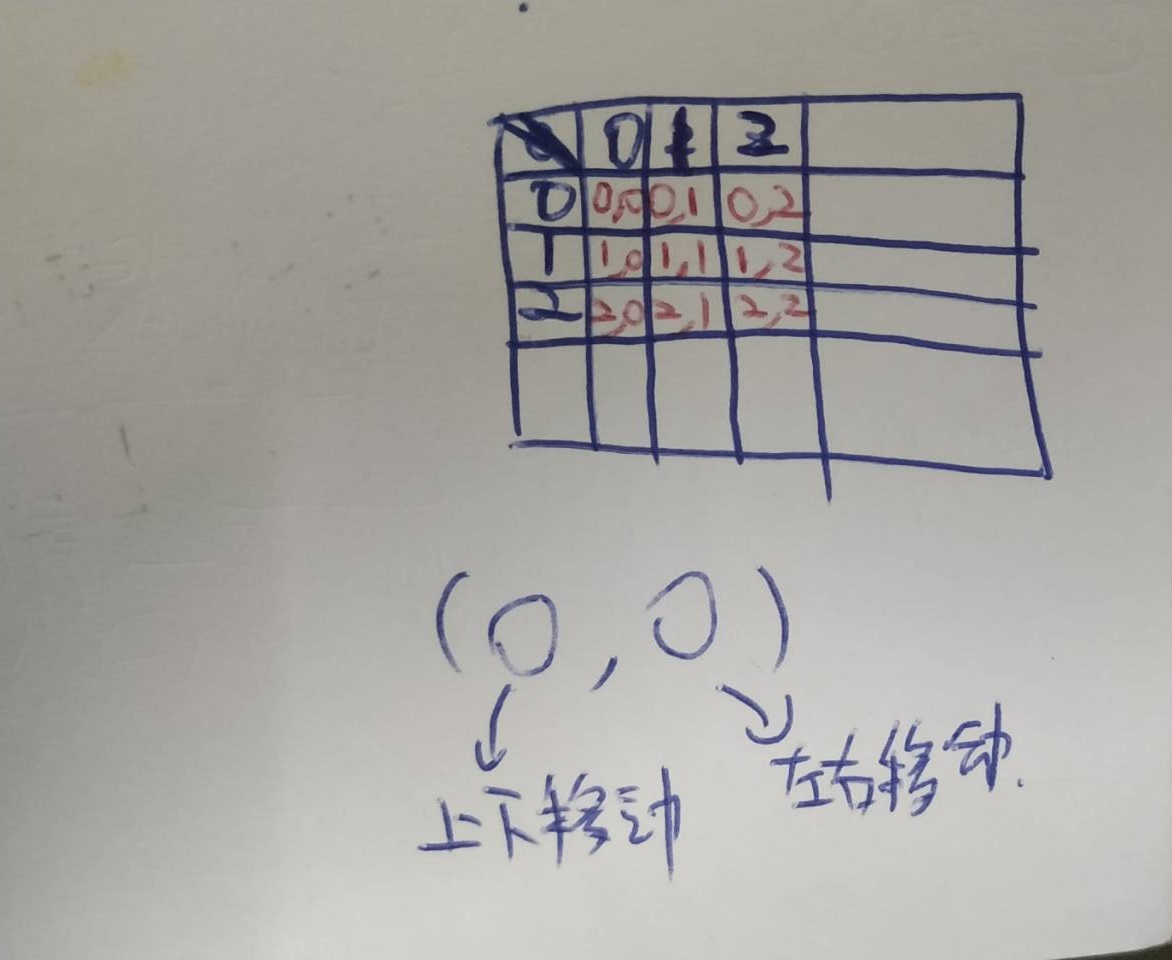 0 1 2
0 0,0 0,1 0,2
1 1,0 1,1 1,2
2 2,0 2,1 2,2
(0,0)
上下移动
左右移动.